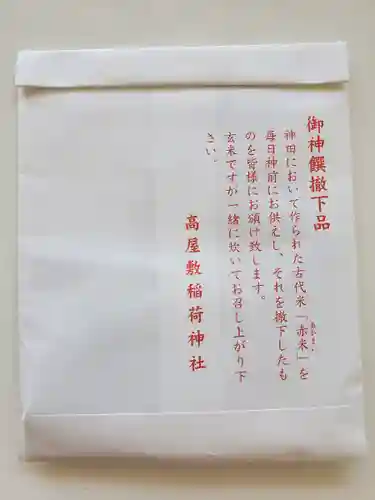 御神饌撤下品
神田において作られた古代米「赤米」を
毎日神前にお供えし、それを撤下したも
のを皆様にお頒け致します。
玄米ですか一緒に炊いてお召し上がり下
さい。
高屋敷稲荷神社